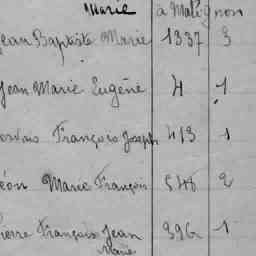 Marie à Matignon
Jean Baptiste Marie 1337 3
Jean Marie Eugène 4 1
François Joseph 413 1
Léon Marie François 548 2
Pierre François Jean 396 1
Marie